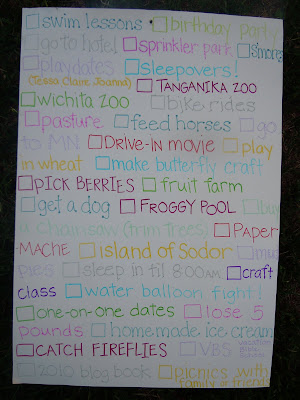 swim lessons birthday party
go to hotel sprinkler park s'mores
playdates sleepovers!
(Tessa Claire, Joanna) TANGANIKA ZOO
wichita zoo bike rides
pasture feed horses go
to MN DRIVE-IN MOVIE play
in wheat make butterfly craft
PICK BERRIES fruit farm
get a dog FROGGY POOL buy
a chainsaw (trim trees) PAPER
-MACHE island of Sodor mud
pies sleep in til 8:00AM craft
class water balloon fight!
one-on-one dates lose 5
pounds homemade ice cream
CATCH FIREFLIES VBS vacation bible school
2010 blog book picnics with
family & friends